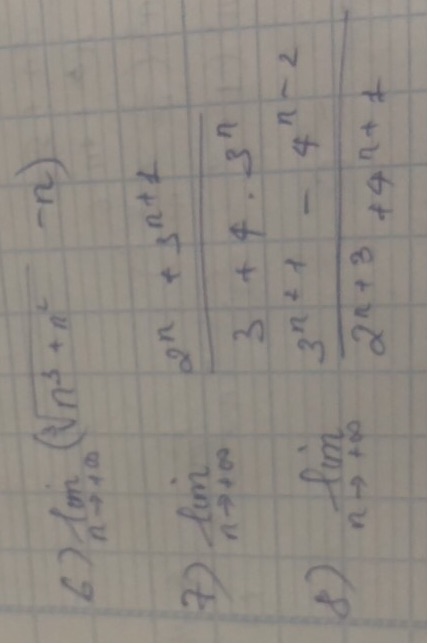 6) lim n→+∞ (∛n³ + n² - n)
7) lim n→+∞ 2ⁿ + 3ⁿ⁺¹ / 3 + 4 · 3ⁿ
8) lim n→+∞ 3ⁿ⁺¹ - 4ⁿ⁻² / 2ⁿ⁺³ + 4ⁿ⁺¹